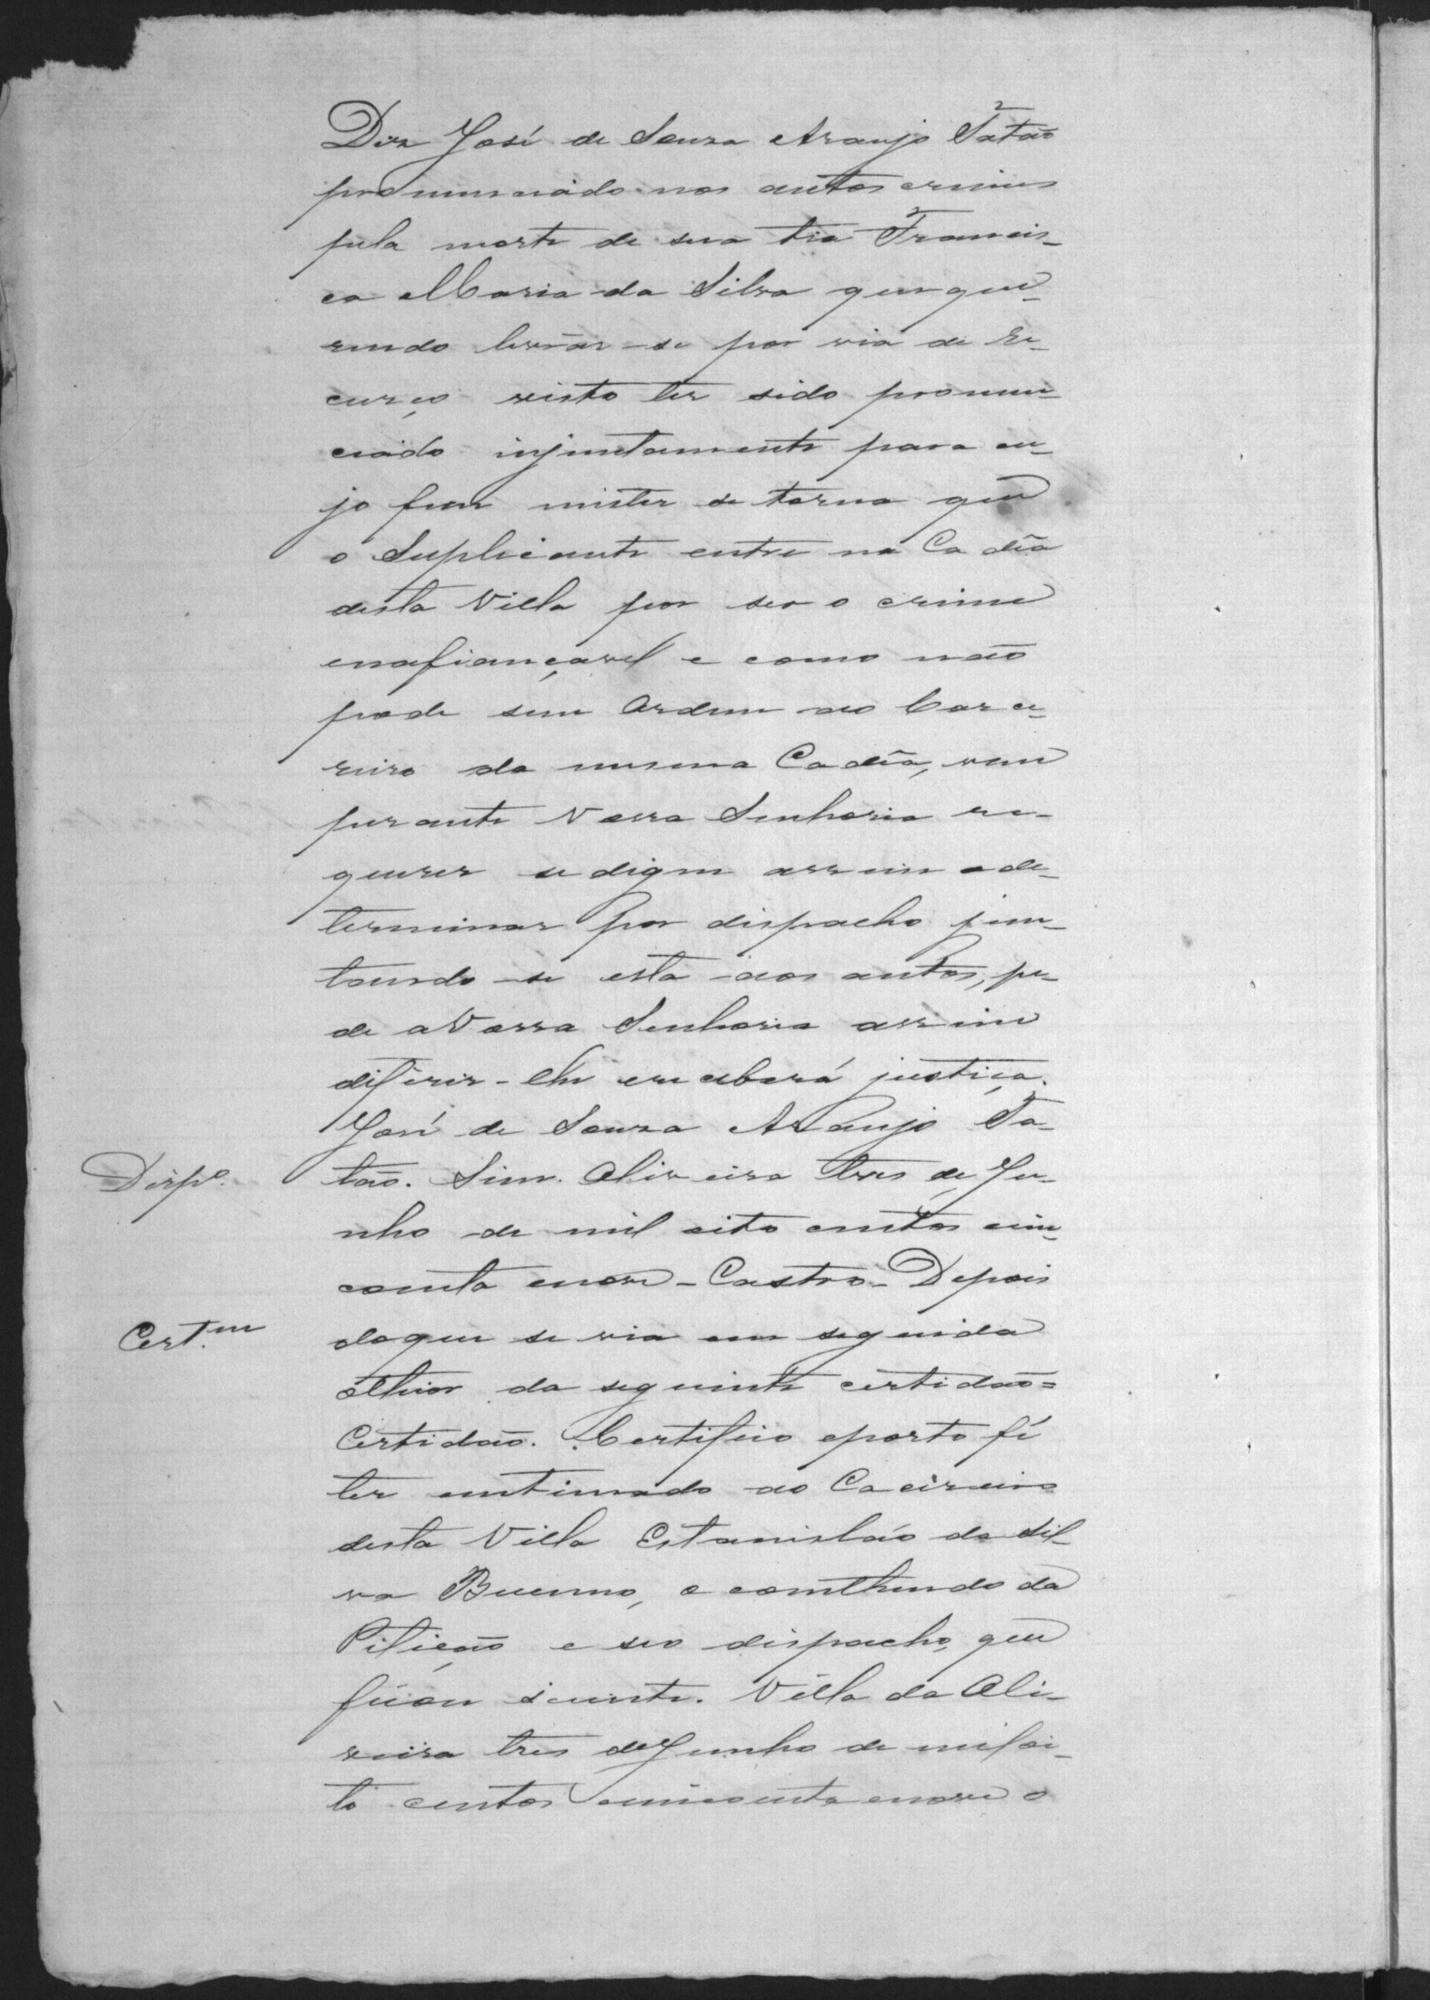 Diz José de Souza Araujo Tatão
pronunciado nos autos crimes
pela morte de sua tia Francis-
ca Maria da Silva que que-
rendo livrar-se por via de Re-
curço visto ter sido pronun-
ciado injustamente para cu-
jo fim mister se torna que
o Suplicante entre na Cadêa
desta Villa por ser o crime
enafiançavel e como não
pode sem Ordem ao Carce-
reiro da mesma Cadêa, vem
perante Vossa Senhoria re-
querer se digne assim o de-
terminar por dispacho jun-
tando-se esta aos autos, pe-
de a Vossa Senhoria assim
diferir-lhe e receberá justiça.
José de Souza Araujo Ta-
Disp.º
tão. Sim. Oliveira tres de Ju-
nho de mil oito centos cin-
coenta enove - Castro - Depois
Cert.m
do que se via em seguida
otheor da seguinte certidão =
Certidão. Certifico eporto fé
ter entimado ao Caceireiro
desta Villa Estanisláo da Sil-
va Buenno, o comthendo da
Pitição e seo dispacho, que
ficou siente. Villa da Oli-
veira tres de Junho de mil oi-
to centos cincoenta enove o